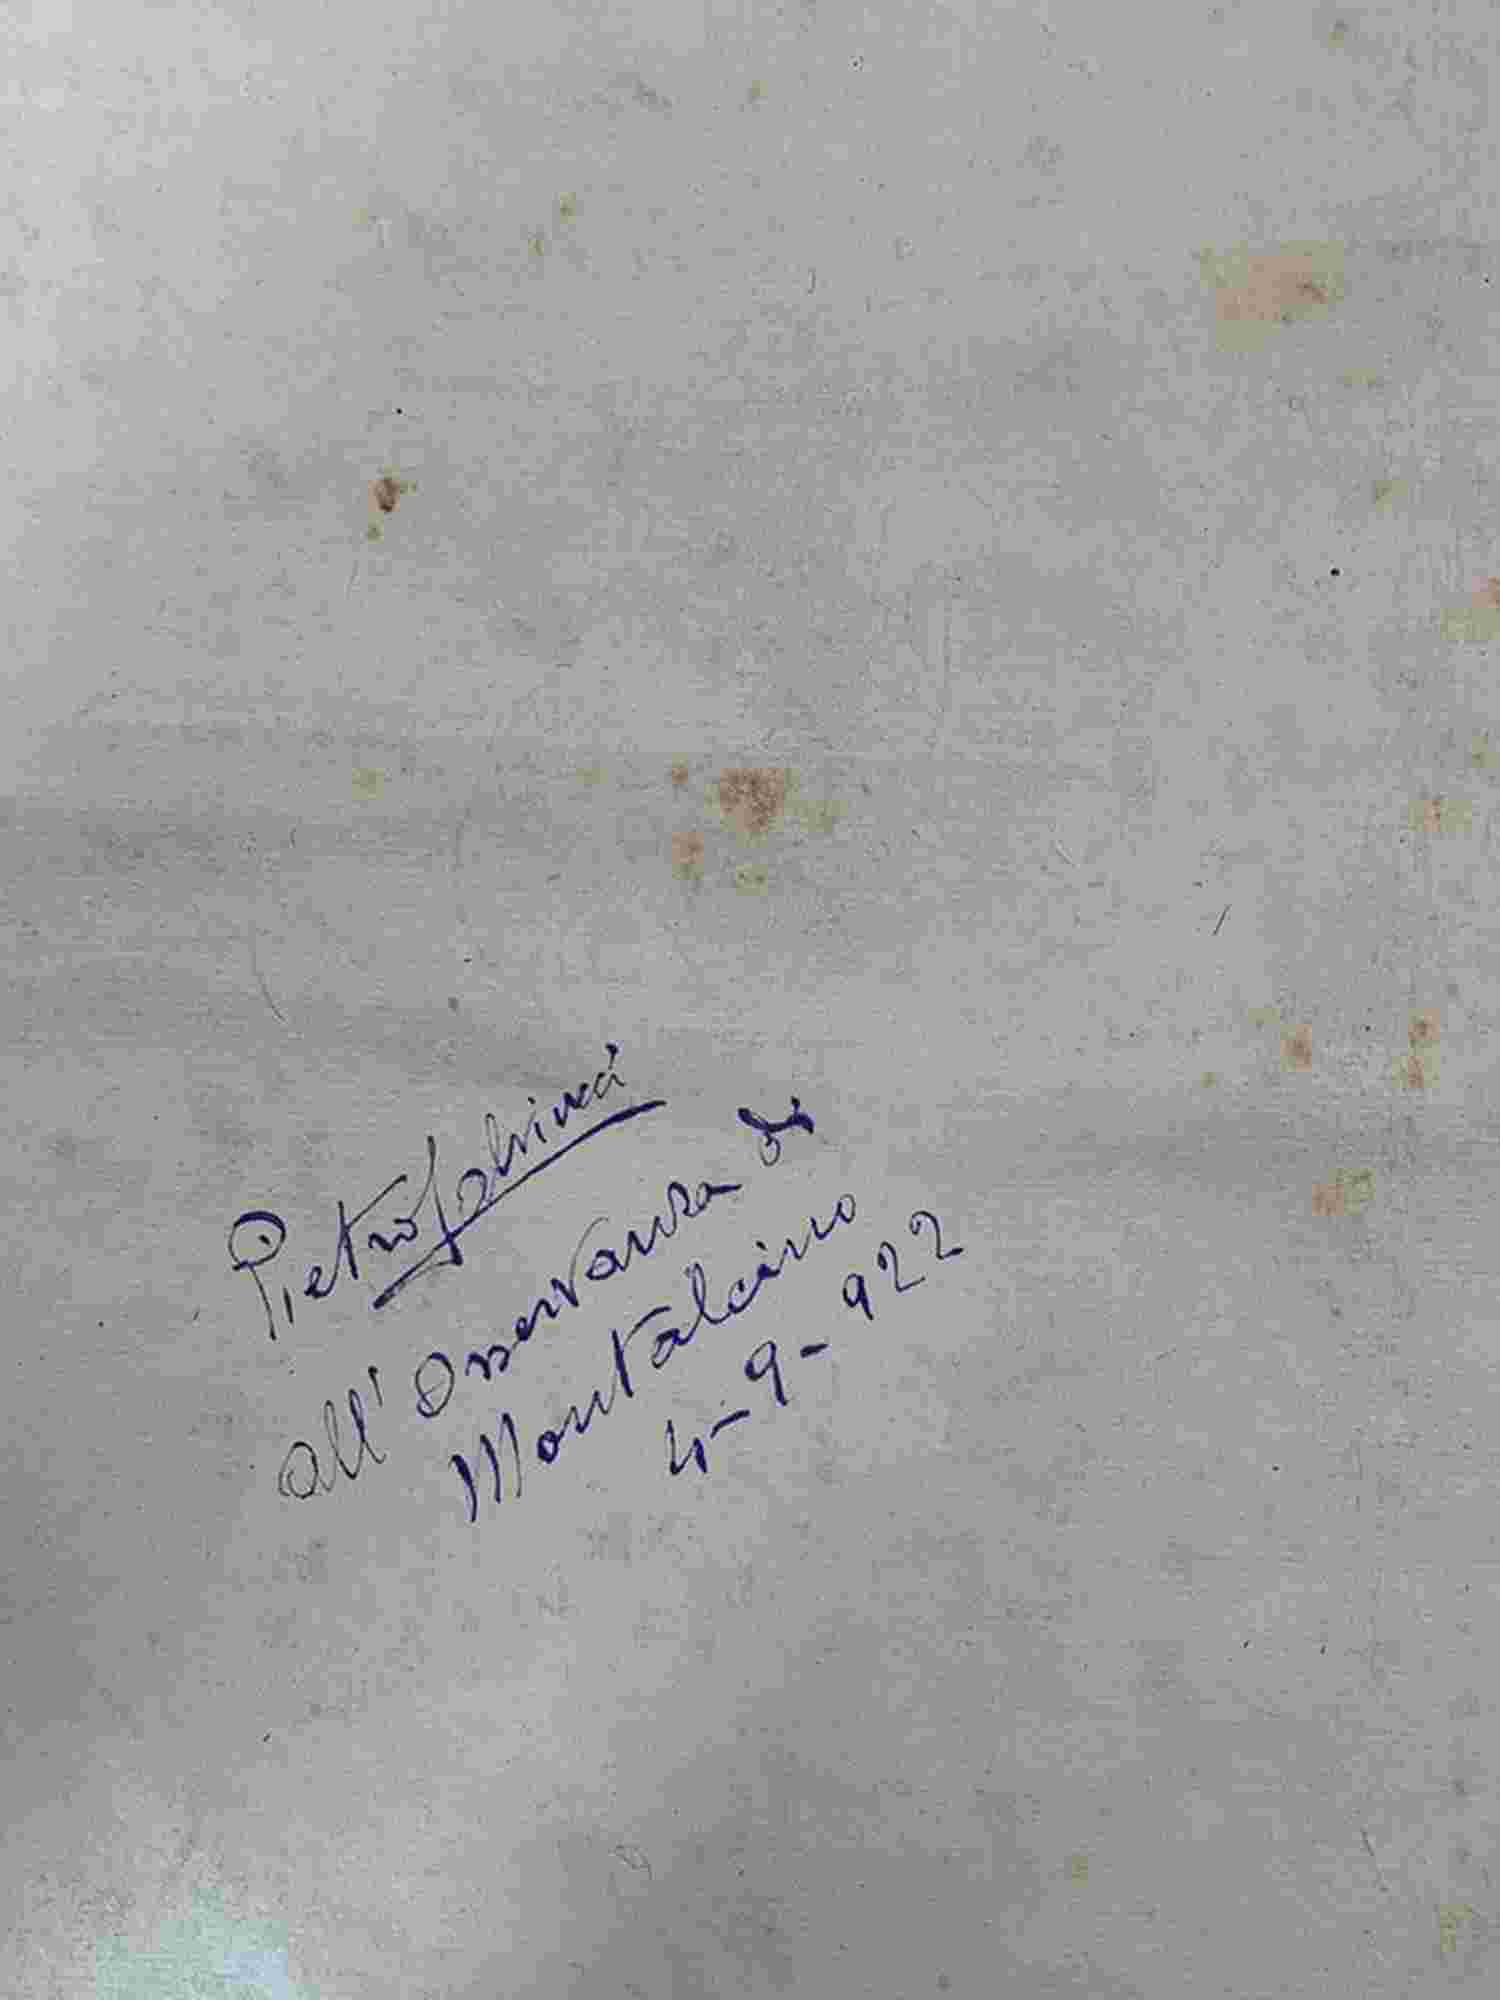 Pietro
all' Osservanza di
Montalcino
4-9-922